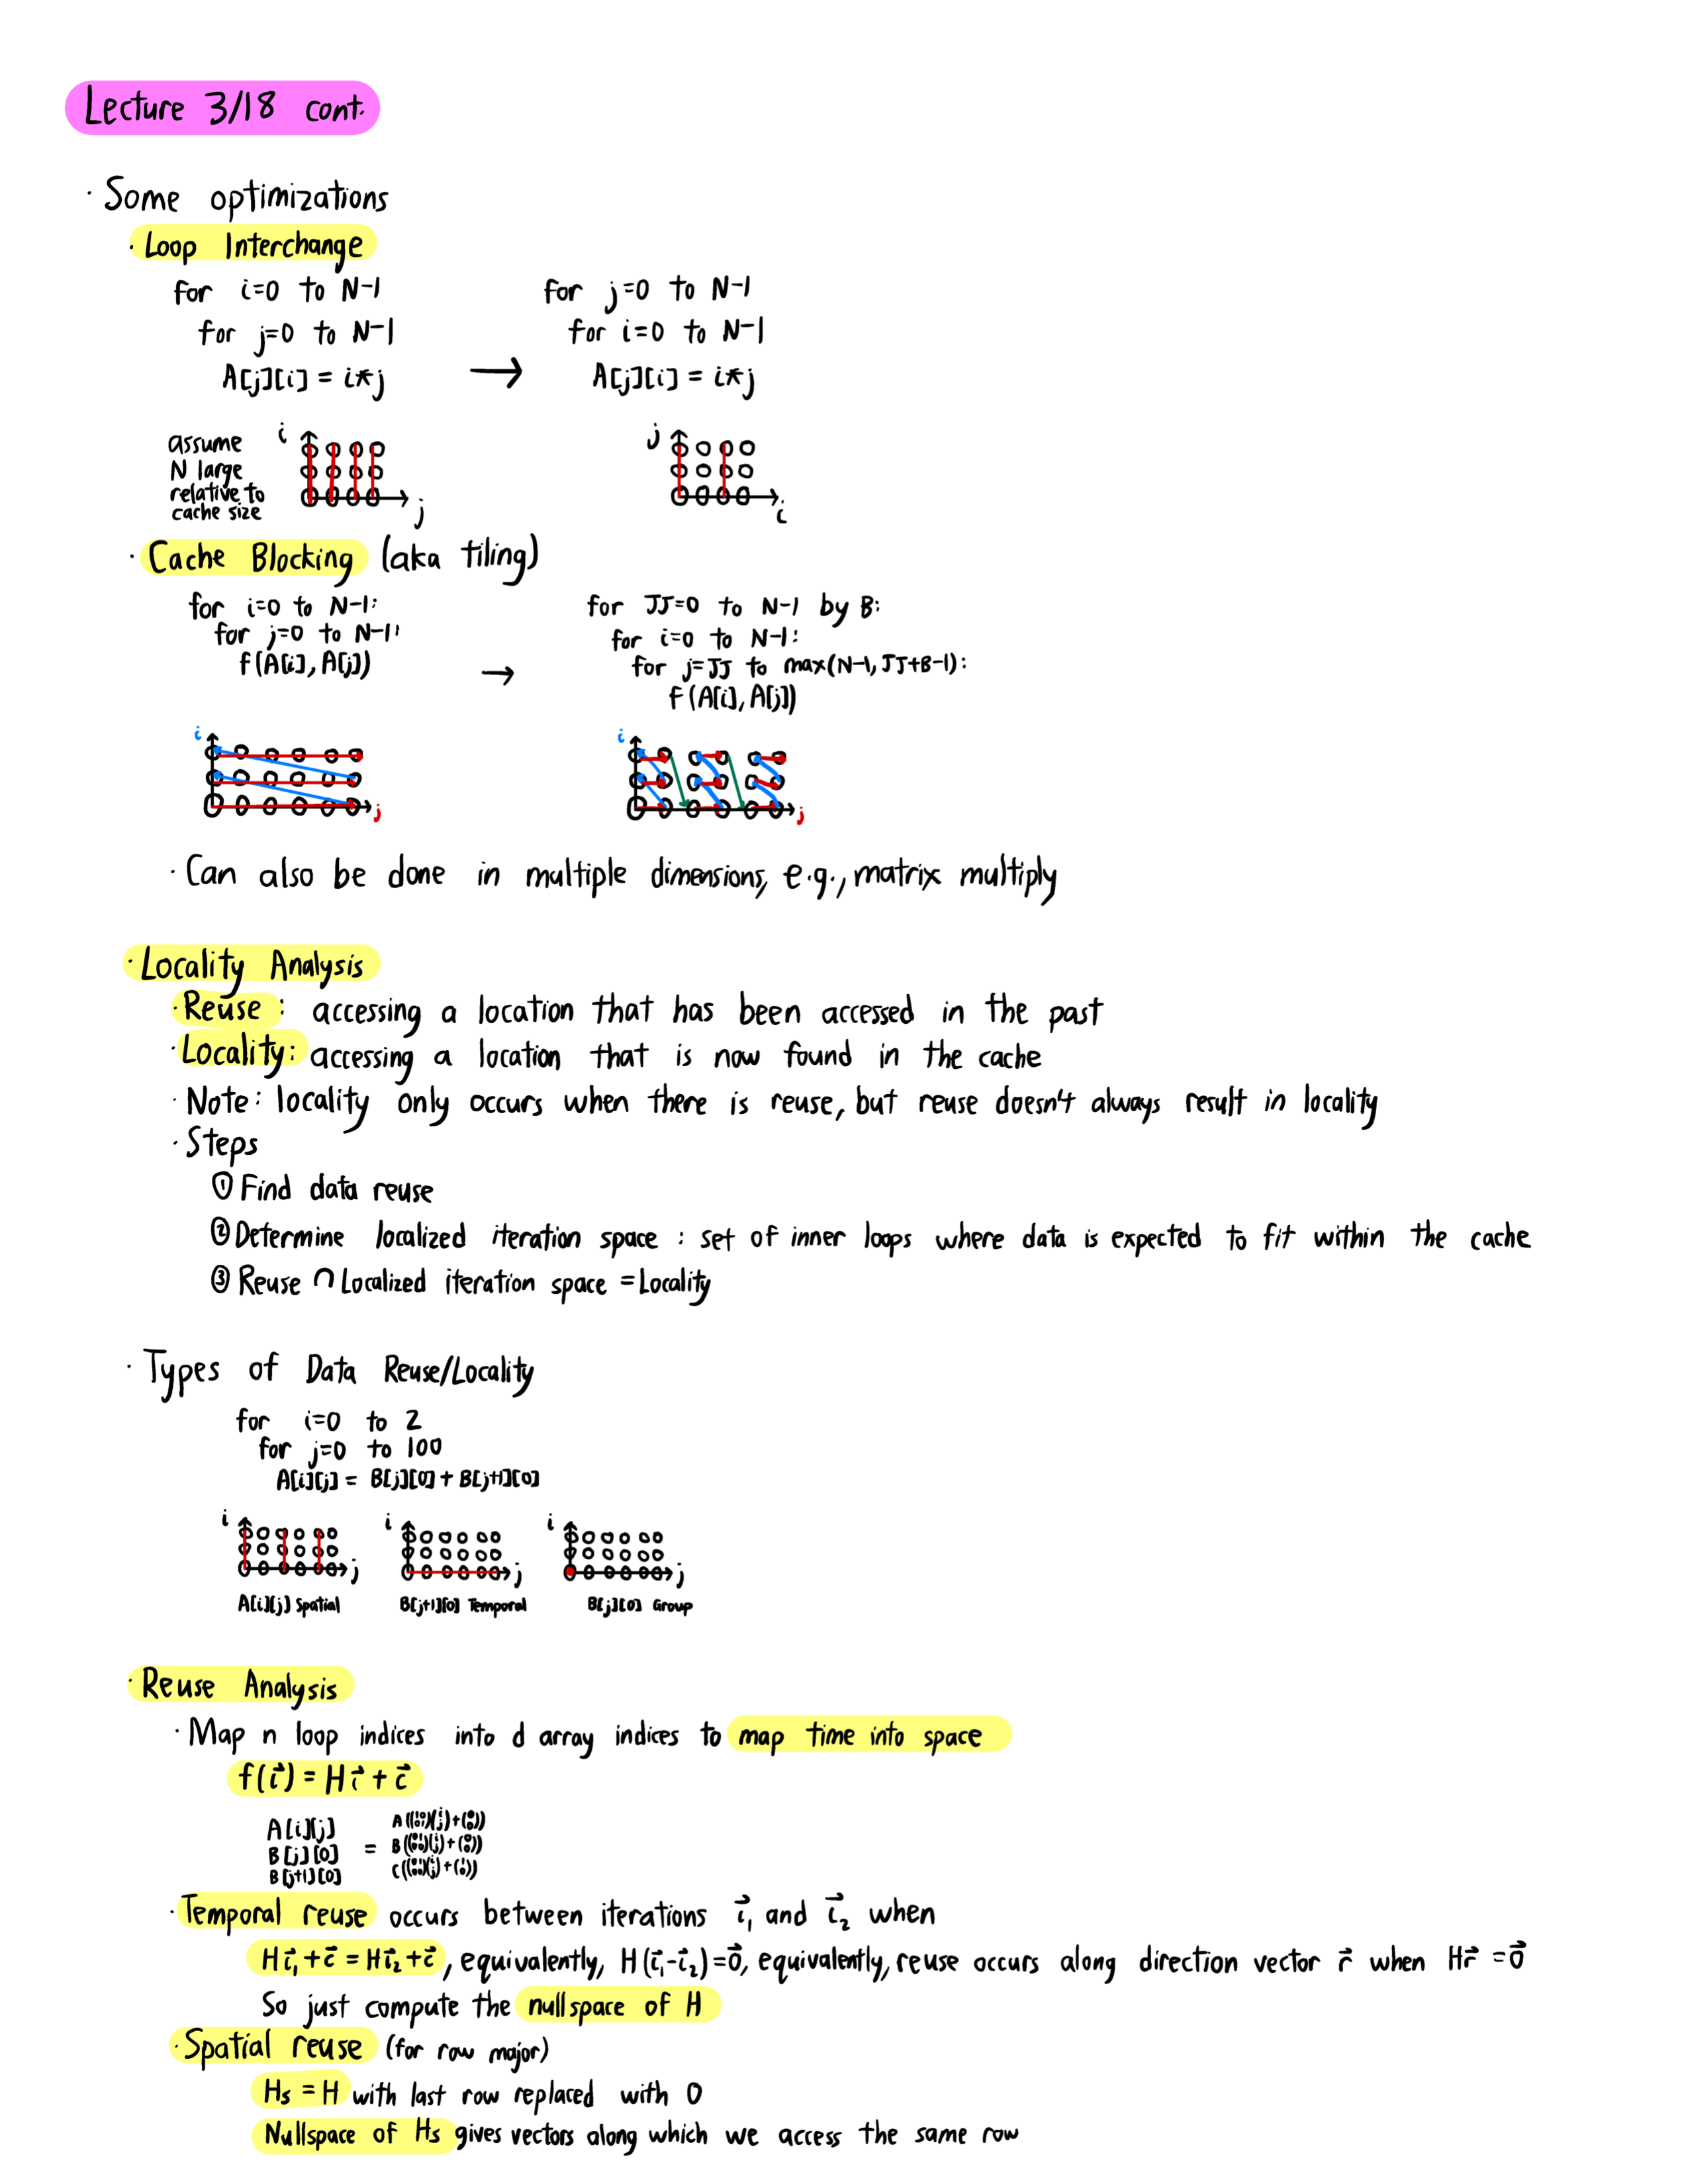 Lecture 3/18 cont.
· Some optimizations
· Loop Interchange
for i=0 to N-1
for j=0 to N-1
A[j][i] = i*j
→
for j=0 to N-1
for i=0 to N-1
A[j][i] = i*j
assume
N large
relative to
cache size
i
j
j
i
· Cache Blocking (aka tiling)
for i=0 to N-1:
for j=0 to N-1:
f(A[i], A[j])
→
for JJ=0 to N-1 by B:
for i=0 to N-1:
for j=JJ to max(N-1, JJ+B-1):
f(A[i], A[j])
i
j
i
j
· Can also be done in multiple dimensions, e.g., matrix multiply
· Locality Analysis
· Reuse: accessing a location that has been accessed in the past
· Locality: accessing a location that is now found in the cache
· Note: locality only occurs when there is reuse, but reuse doesn't always result in locality
· Steps
① Find data reuse
② Determine localized iteration space : set of inner loops where data is expected to fit within the cache
③ Reuse ∩ Localized iteration space = Locality
· Types of Data Reuse/Locality
for i=0 to 2
for j=0 to 100
A[i][j] = B[j][0] + B[j+1][0]
i
j
A[i][j] Spatial
i
j
B[j+1][0] Temporal
i
j
B[j][0] Group
· Reuse Analysis
· Map n loop indices into d array indices to map time into space
f(i⃗) = Hi⃗ + c⃗
A[i][j]
B[j][0]
B[j+1][0]
=
A((1 0 0 1)(i j)+(0 0))
B((0 1 0 0)(i j)+(0 0))
C((0 1 0 0)(i j)+(1 0))
· Temporal reuse occurs between iterations i⃗₁ and i⃗₂ when
Hi⃗₁+c⃗ = Hi⃗₂+c⃗, equivalently, H(i⃗₁-i⃗₂)=0⃗, equivalently, reuse occurs along direction vector r⃗ when Hr⃗ = 0⃗
So just compute the nullspace of H
· Spatial reuse (for row major)
Hs = H with last row replaced with 0
Nullspace of Hs gives vectors along which we access the same row